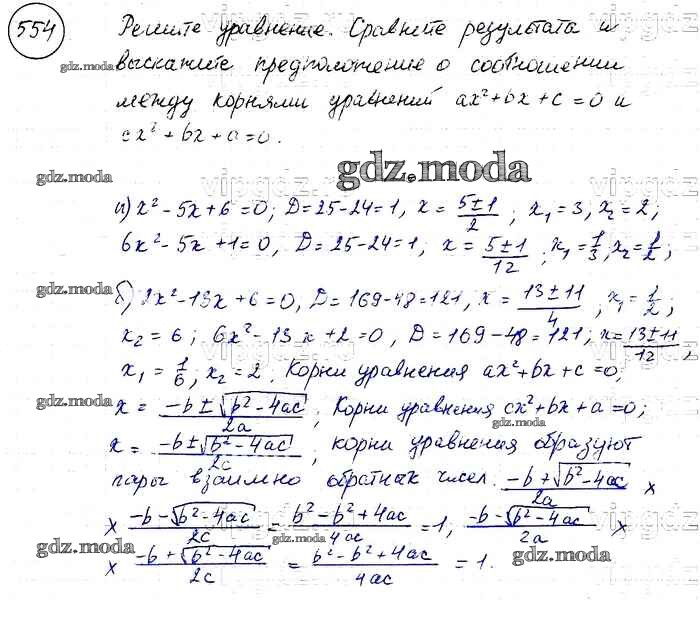 554
Решите уравнение. Сравните результата и
выскажите предположение о соотношении
между корнями уравнений ax²+bx+c=0 и
cx²+bx+a=0.
gdz.moda
а) x²-5x+6=0; D=25-24=1, x = (5±1)/2; x₁=3, x₂=2;
6x²-5x+1=0, D=25-24=1, x = (5±1)/12; x₁=1/3, x₂=1/2;
б) 2x²-13x+6=0, D=169-48=121, x = (13±11)/4, x₁=1/2;
x₂=6; 6x²-13x+2=0, D=169-48=121; x=(13±11)/12,
x₁=1/6, x₂=2. Корни уравнения ax²+bx+c=0,
x = (-b±√(b²-4ac))/2a; Корни уравнения cx²+bx+a=0;
x = (-b±√(b²-4ac))/2c, корни уравнения образуют
пары взаимно обратных чисел. (-b+√(b²-4ac))/2a ×
× (-b-√(b²-4ac))/2c = (b²-b²+4ac)/4ac = 1, (-b-√(b²-4ac))/2a ×
× (-b+√(b²-4ac))/2c = (b²-b²+4ac)/4ac = 1.